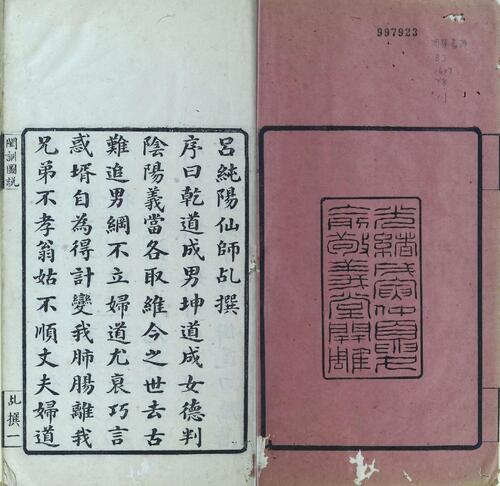 997923
光緒戊寅仲夏月
敬義堂開雕
呂純陽仙師乩撰
序曰乾道成男坤道成女德判
陰陽義當各取維今之世去古
難追男綱不立婦道尤衰巧言
惑壻自為得計變我肺腸離我
兄弟不孝翁姑不順丈夫婦道
閨訓圖說
乩撰一